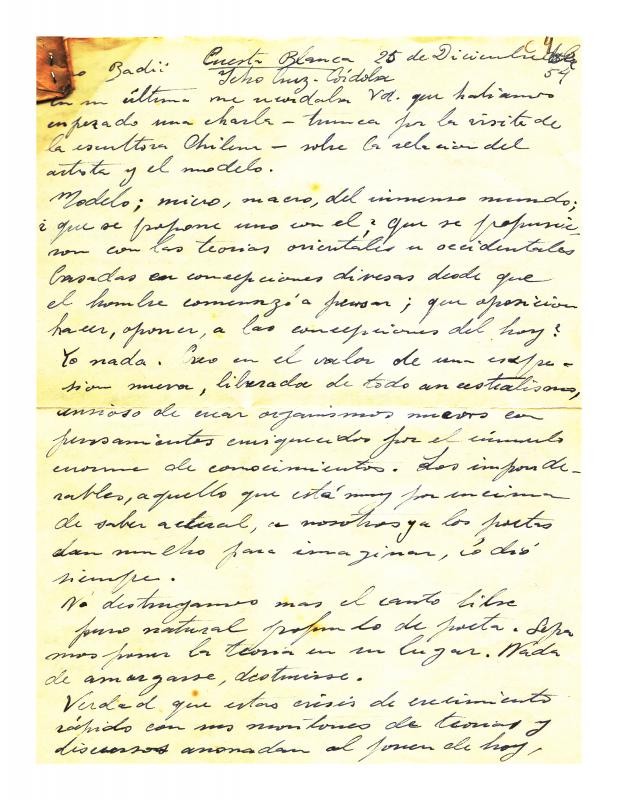 Cuesta Blanca 25 de Diciembre
Badii Icho Cruz - Córdoba 54
en su última me recordaba Vd. que habíamos
empezado una charla - trunca por la visita de
la escultora Chilena - sobre la relacion del
artista y el modelo.
Modelo; micro, macro, del inmenso mundo;
¿que se propone uno con el; que se propusie
ron con las teorias orientales u occidentales
basadas en concepciones diversas desde que
el hombre comenzó a pensar; que oposicion
hacer, oponer, a las concepciones del hoy?
Yo nada. Creo en el valor de una expre-
sion nueva, liberada de todo ancestralismo,
ansioso de crear organismos nuevos con
pensamientos enriquecidos por el cúmulo
enorme de conocimientos. Los imponde-
rables, aquello que está muy por encima
de saber actual, a nosotros ya los poetas
dan mucho para imaginar, lo dió
siempre.
No destruyamos mas el canto libre
puro natural profundo de poeta. Sepa
mos poner la teoria en su lugar. Nada
de amargarse, destruirse.
Verdad que estas crisis de crecimiento
rápido con sus montones de teorias y
discursos anonadan al joven de hoy,